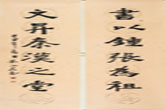 書以鍾張為祖
文昇秦漢之堂